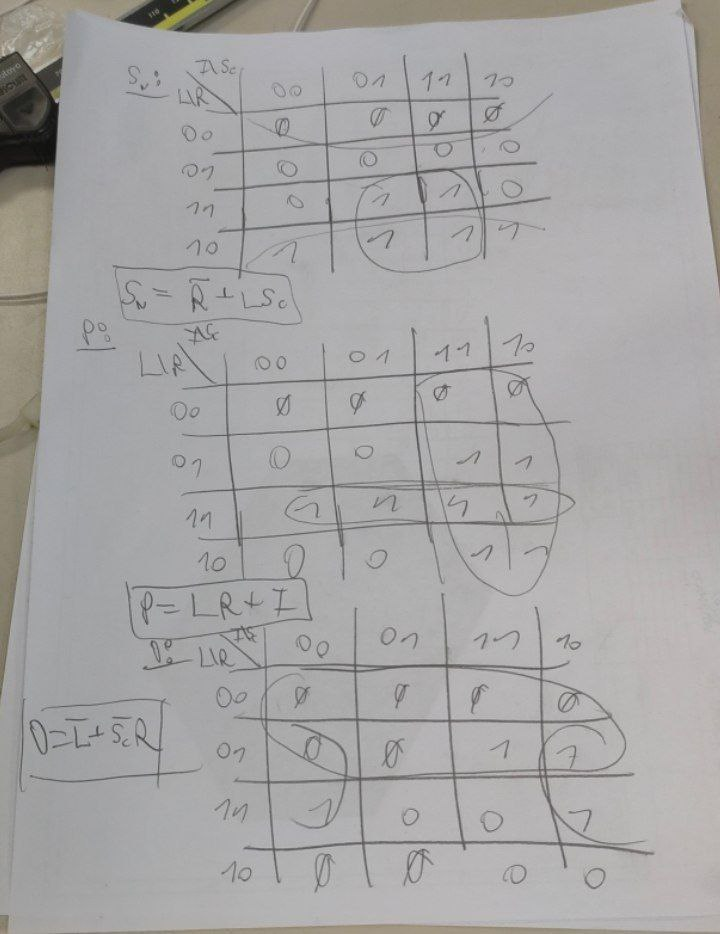 Sₙ: I\Sc 00 01 11 10
L\R
00 Ø Ø Ø Ø
01 0 0 0 0
11 0 1 1 0
10 1 1 1 1
Sₙ = R̅ + LSc
P:
L\R 00 01 11 10
00 Ø Ø Ø Ø
01 0 0 1 1
11 1 1 1 1
10 0 0 1 1
P = LR + I
D: L\R 00 01 11 10
00 Ø Ø Ø Ø
D = L̅ + S̅cR
01 Ø Ø 1 1
11 1 0 0 1
10 Ø Ø 0 0